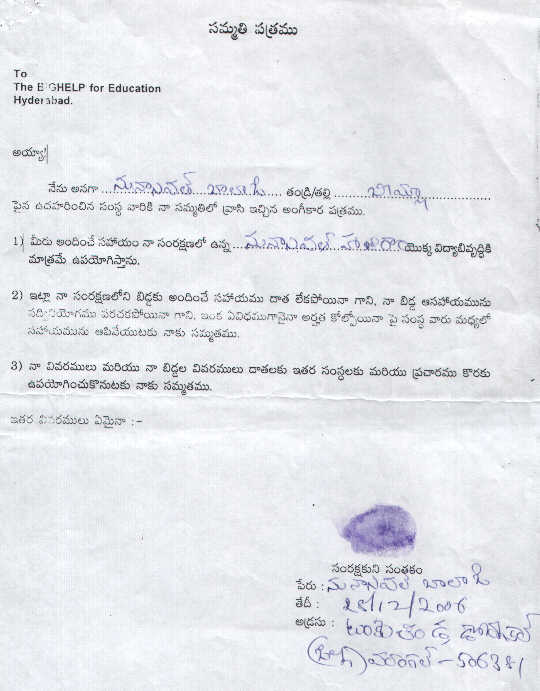 సమ్మతి పత్రము
To
The BIGHELP for Education
Hyderabad.
అయ్యా!
నేను అనగా ... బాలాజీ ... తండ్రి/తల్లి ...
పైన ఉదహరించిన సంస్థ వారికి నా సమ్మతిలో వ్రాసి ఇచ్చిన అంగీకార పత్రము.
1) మీరు అందించే సహాయం నా సంరక్షణలో ఉన్న ... యొక్క విద్యాభివృద్ధికి
మాత్రమే ఉపయోగిస్తాను.
2) ఇట్లా నా సంరక్షణలోని బిడ్డకు అందించే సహాయము దాత లేకపోయినా గాని, నా బిడ్డ ఆసహాయమును
సద్వినియోగము పరచకపోయినా గాని, ఇంక ఏవిధముగానైనా అర్హత కోల్పోయినా పై సంస్థ వారు మధ్యలో
సహాయమును ఆపివేయుటకు నాకు సమ్మతము.
3) నా వివరములు మరియు నా బిడ్డల వివరములు దాతలకు ఇతర సంస్థలకు మరియు ప్రచారము కొరకు
ఉపయోగించుకొనుటకు నాకు సమ్మతము.
ఇతర వివరములు ఏమైనా :-
సంరక్షకుని సంతకం
పేరు :
తేదీ : 28/12/2006
అడ్రసు :
వరంగల్ - 506381